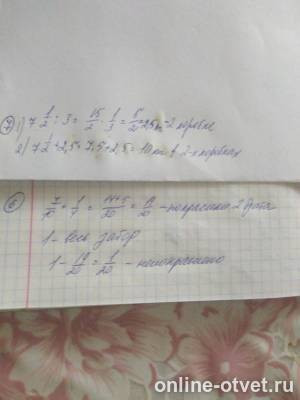 7) 1) 7 1/2 : 3 = 15/2 · 1/3 = 5/2 = 2,5 кг - 2 коробке
2) 7 1/2 + 2,5 = 7,5 + 2,5 = 10 кг в 2-х коробках
6) 7/10 + 1/ = 14+5/20 = 19/20 - покрасили 2
1 - весь забор
1 - 19/20 = 1/20 - непокрашено
online-otvet.ru